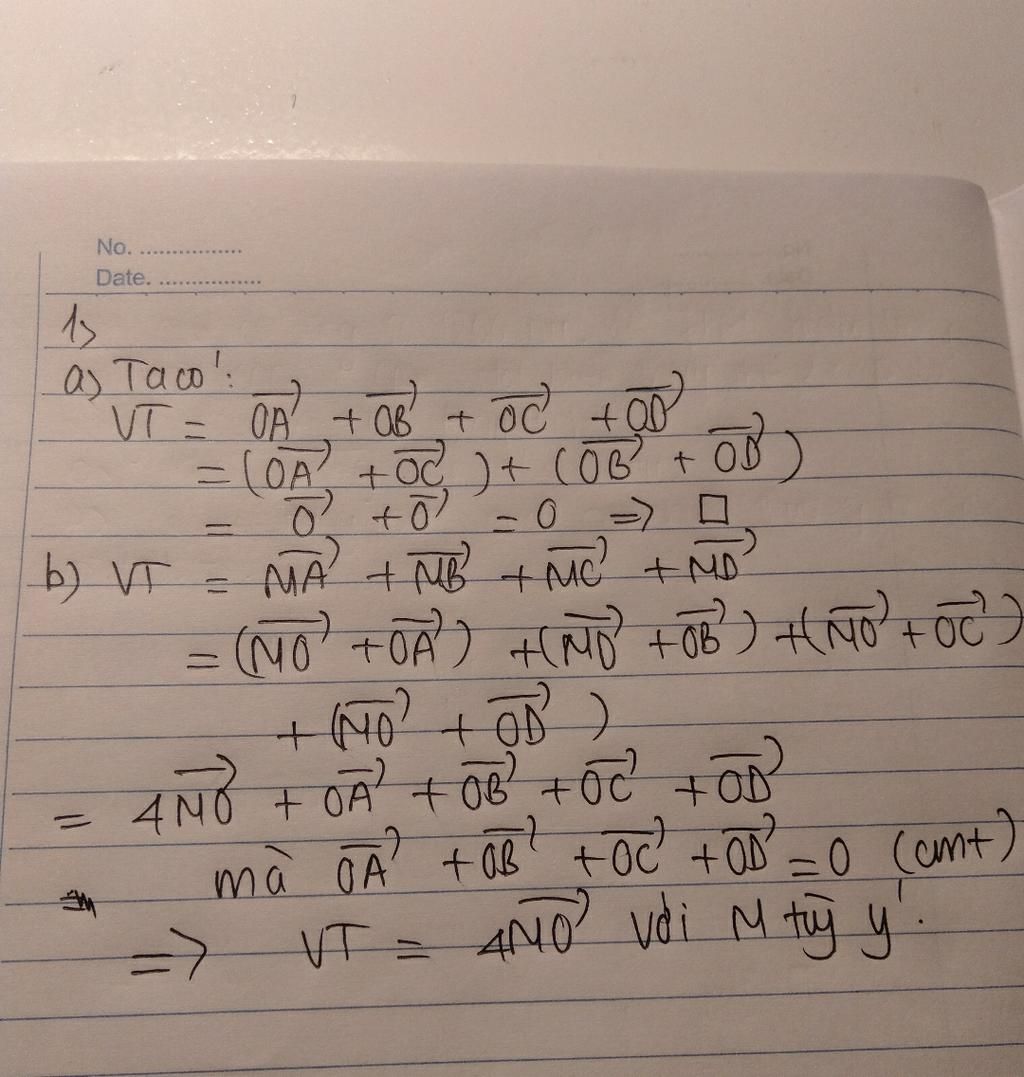 No. ................
Date. .................
1)
a) Ta có:
VT = $\overrightarrow{OA}$ + $\overrightarrow{OB}$ + $\overrightarrow{OC}$ + $\overrightarrow{OD}$
= ($\overrightarrow{OA}$ + $\overrightarrow{OC}$) + ($\overrightarrow{OB}$ + $\overrightarrow{OD}$)
= $\overrightarrow{O}$ + $\overrightarrow{O}$ = 0 => □
b) VT = $\overrightarrow{MA}$ + $\overrightarrow{MB}$ + $\overrightarrow{MC}$ + $\overrightarrow{MD}$
= ($\overrightarrow{MO}$ + $\overrightarrow{OA}$) + ($\overrightarrow{MO}$ + $\overrightarrow{OB}$) + ($\overrightarrow{MO}$ + $\overrightarrow{OC}$)
+ ($\overrightarrow{MO}$ + $\overrightarrow{OD}$)
= 4$\overrightarrow{MO}$ + $\overrightarrow{OA}$ + $\overrightarrow{OB}$ + $\overrightarrow{OC}$ + $\overrightarrow{OD}$
mà $\overrightarrow{OA}$ + $\overrightarrow{OB}$ + $\overrightarrow{OC}$ + $\overrightarrow{OD}$ = 0 (cmt)
=> VT = 4$\overrightarrow{MO}$ với M tùy ý.